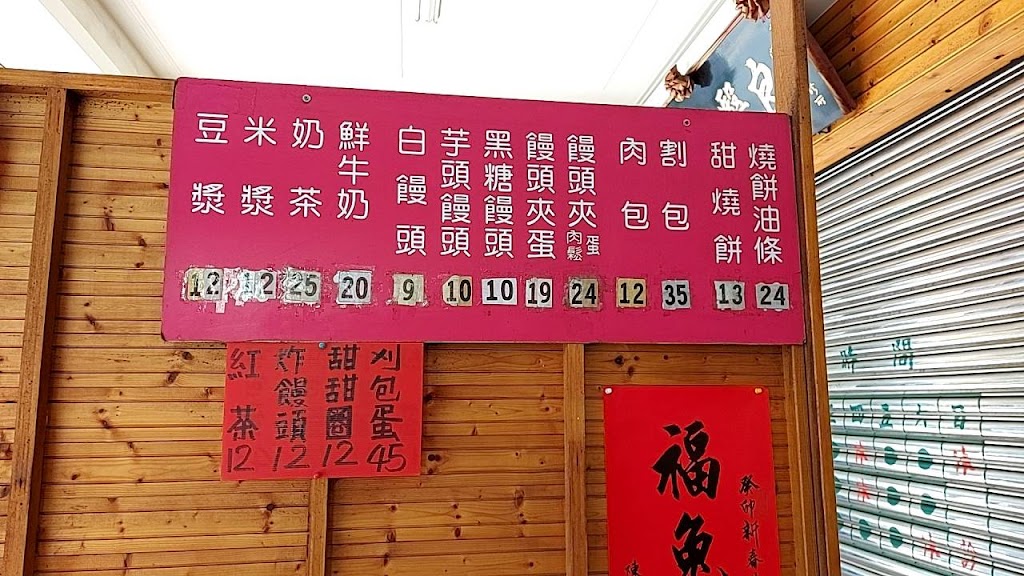 燒餅油條 24
甜燒餅 13
割包 35
肉包 12
饅頭夾蛋肉鬆 24
饅頭夾蛋 19
黑糖饅頭 10
芋頭饅頭 10
白饅頭 9
鮮牛奶 20
奶茶 25
米漿 12
豆漿 12
刈包蛋 45
甜甜圈 12
炸饅頭 12
紅茶 12
福
癸卯新春
時間
四五六日
休
休
休